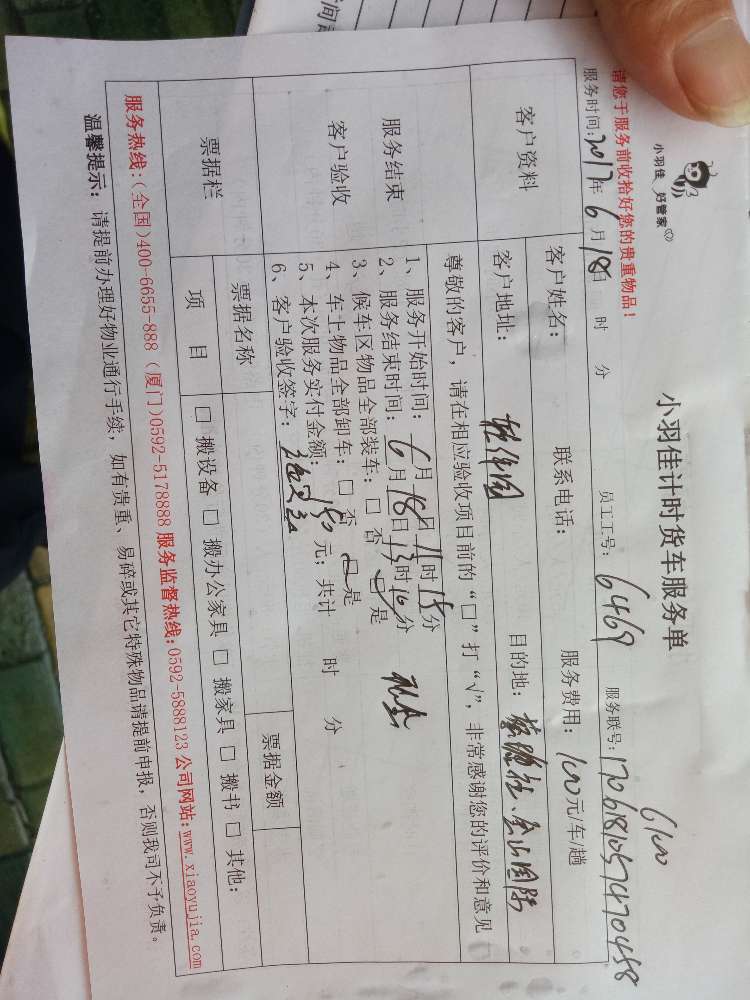 小羽佳 好管家
小羽佳计时货车服务单
请您于服务前收拾好您的贵重物品！
6100
服务时间：2017年6月18日 时 分 员工工号：6469 服务联号：
客户资料 客户姓名： 联系电话： 服务费用：100元/车/趟
客户地址：软件园 目的地：
尊敬的客户，请在相应验收项目前的“□”打“√”，非常感谢您的评价和意见
服务结束
客户验收
1、服务开始时间：6月18日11时15分
2、服务结束时间：6月18日13时10分 现金
3、候车区物品全部装车：□ 否 □ 是
4、车上物品全部卸车：□ 否 □ 是
5、本次服务实付金额：150元；共计 时 分
6、客户验收签字：
票据栏 票据名称 票据金额
项 目 □ 搬设备 □ 搬办公家具 □ 搬家具 □ 搬书 □ 其他：
服务热线：(全国)400-6655-888 (厦门)0592-5178888 服务监督热线：0592-5888123 公司网站：www.xiaoyujia.com
温馨提示：请提前办理好物业通行手续，如有贵重、易碎或其它特殊物品请提前申报，否则我司不予负责。